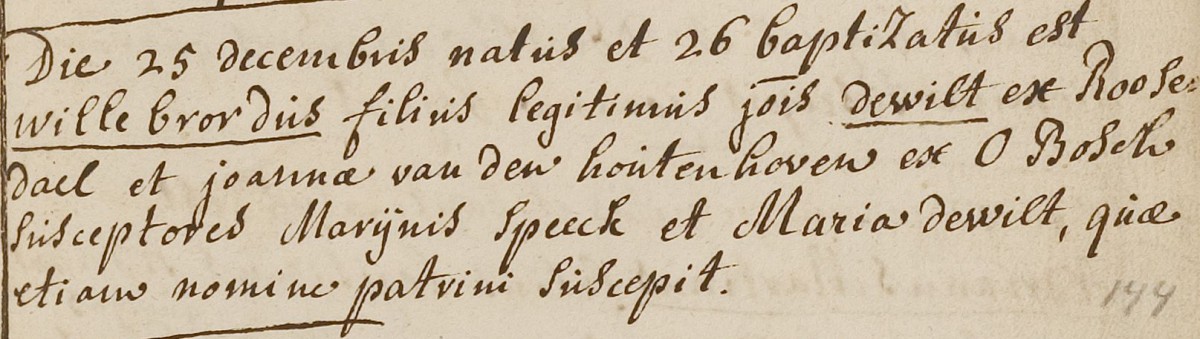 Die 25 decembris natus et 26 baptiZatus est
willebrordus filius legitimus jois dewilt ex Roose=
dael et joannæ van den houtenhoven ex O Bosch
susceptores Marijnis Speeck et Maria dewilt, quæ
etiam nomine patrini suscepit.
144